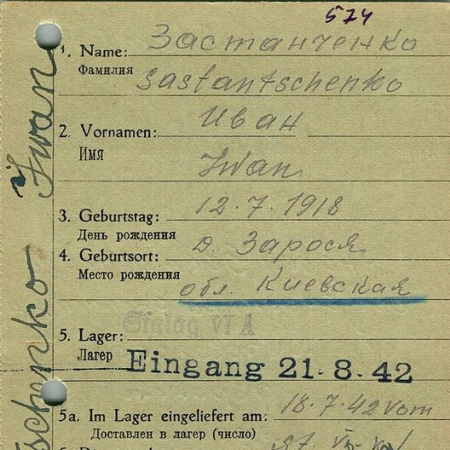 574
1. Name: Застанченко
Фамилия Sastantschenko
2. Vornamen: Иван
Имя Iwan
3. Geburtstag: 12.7.1918
День рождения
4. Geburtsort: д. Зарося
Место рождения обл. Киевская
5. Lager: Stalag VI A
Лагер Eingang 21.8.42
5a. Im Lager eingeliefert am: 18.7.42 vom
Доставлен в лагер (число)
schenko Iwan